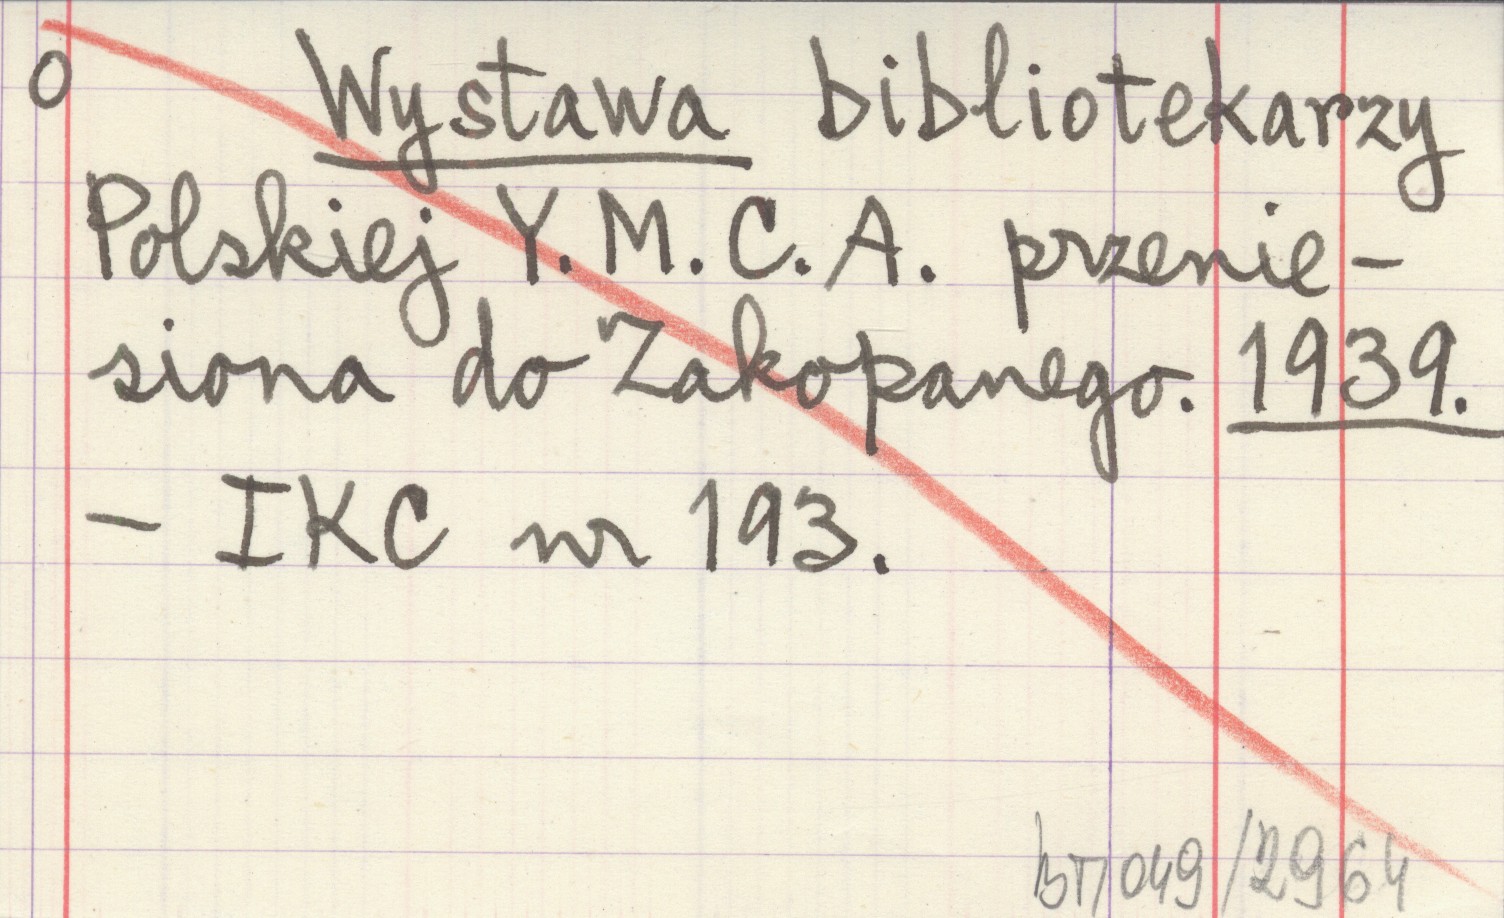 O Wystawa bibliotekarzy
Polskiej Y.M.C.A. przenie-
siona do Zakopanego. 1939.
- IKC nr 193.
BTI049/2964